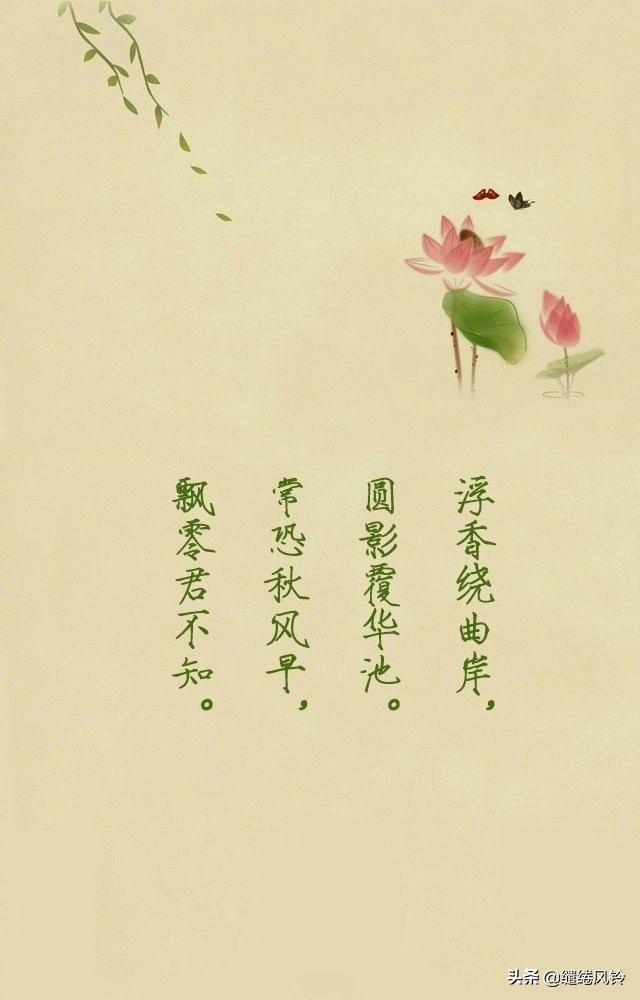 浮香绕曲岸，
圆影覆华池。
常恐秋风早，
飘零君不知。
头条 @缱绻风铃